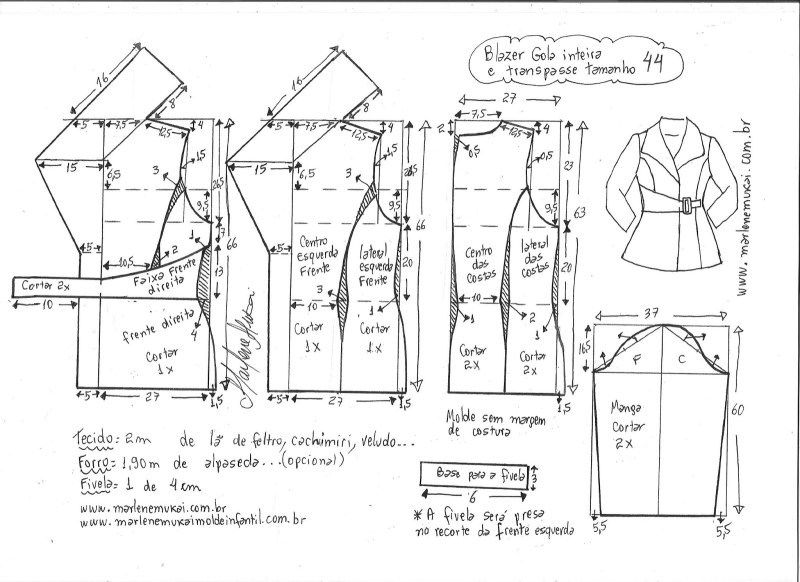 Blazer Gola inteira
e transpasse tamanho 44
16
8
5
7,5
12,5
4
15
6,5
3
1,5
9,5
7
66
1
10,5
2
5
13
Cortar 2x
Faixa frente
direita
10
frente direita
4
Cortar
1x
5
27
1,5
Marlene Mukai
16
8
5
7,5
12,5
4
15
6,5
3
9,5
66
5
Centro
esquerda
Frente
lateral
esquerda
Frente
20
3
10
1
Cortar
1x
Cortar
1x
5
27
1,5
27
7,5
2
12,5
4
0,5
0,5
23
9,5
63
Centro
das
costas
lateral
das
costas
20
10
1
1
Cortar
2x
Cortar
2x
1,5
www.marlenemukai.com.br
37
16,5
F
C
60
Manga
Cortar
2x
5,5
5,5
Molde sem margem
de costura
Base para a fivela
3
6
* A fivela será presa
no recorte da frente esquerda
Tecido= 2m de lã de feltro, cachimiri, veludo...
Forro= 1,90m de alpaseda...(opcional)
Fivela= 1 de 4cm
www.marlenemukai.com.br
www.marlenemukaimoldeinfantil.com.br